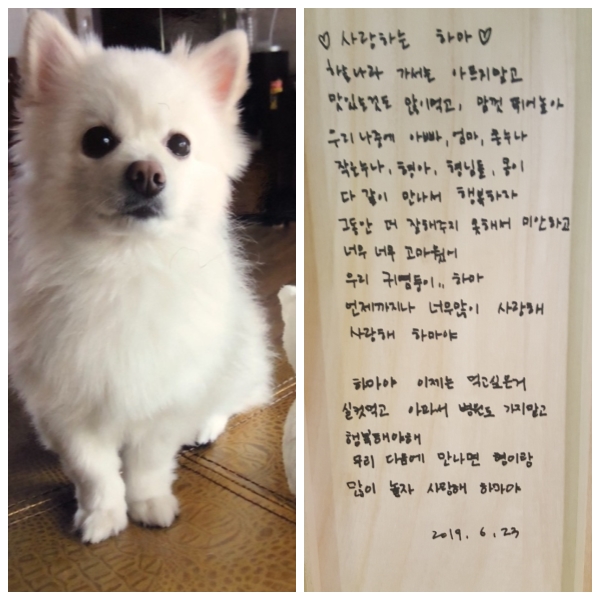 ♡ 사랑하는 하마 ♡
하늘나라 가서는 아프지말고
맛있는것도 많이먹고, 맘껏 뛰어놀아
우리 나중에 아빠, 엄마, 큰누나
작은누나, 형아, 형님들, 몽이
다 같이 만나서 행복하자
그동안 더 잘해주지 못해서 미안하고
너무 너무 고마웠어
우리 귀염둥이,, 하마
언제까지나 너무많이 사랑해
사랑해 하마야
하마야 이제는 먹고싶은거
실컷먹고 아파서 병원도 가지말고
행복해야해
우리 다음에 만나면 형이랑
많이 놀자 사랑해 하마야
2019. 6. 23